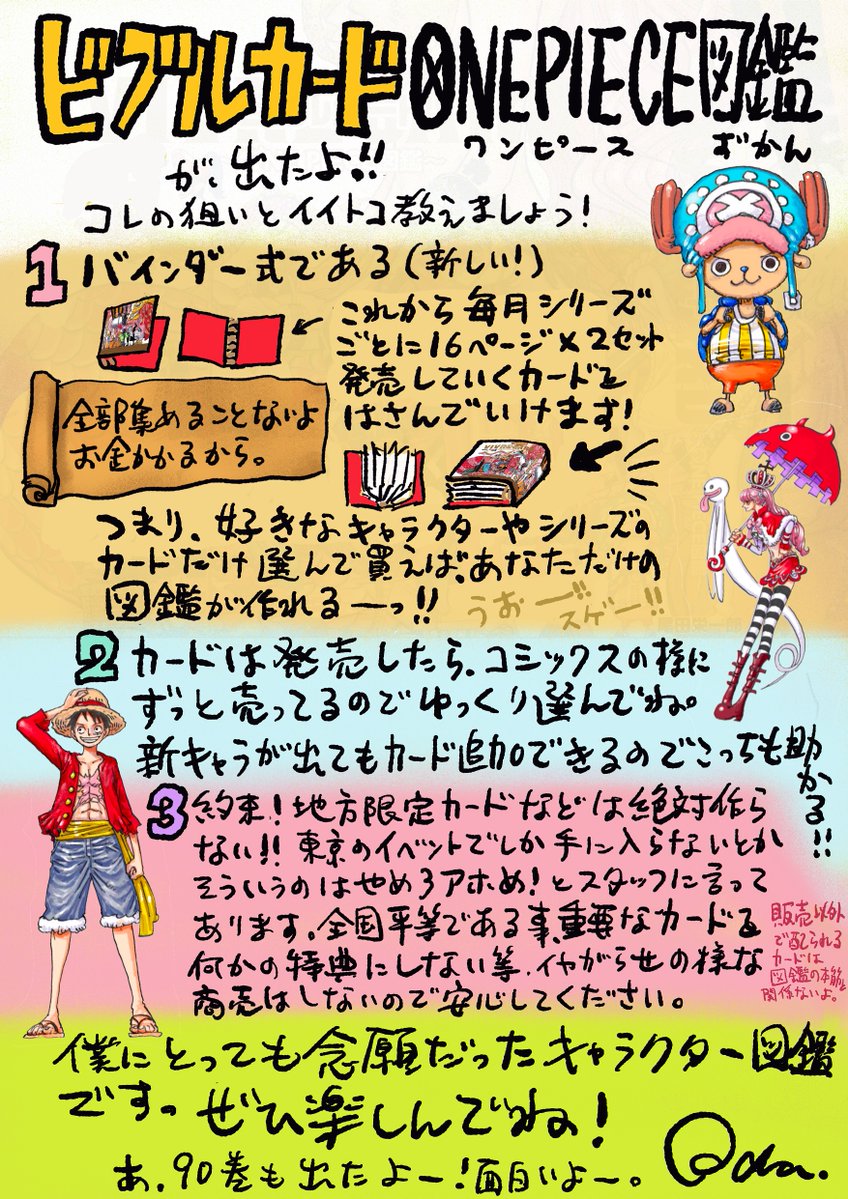 ビブルカードONEPIECE図鑑
ワンピース ずかん
が、出たよ!!
コレの狙いとイイトコ教えましょう!
1 バインダー式である(新しい!)
これから毎月シリーズ
ごとに16ページ×2セット
発売していくカードを
はさんでいけます!
全部集めることないよ
お金かかるから。
つまり、好きなキャラクターやシリーズの
カードだけ選んで買えば、あなただけの
図鑑が作れるーっ!!
うおーースゲー!!
2 カードは発売したら、コミックスの様に
ずっと売ってるのでゆっくり選んでね。
新キャラが出てもカード追加できるのでこっちも助かる!!
3 約束!地方限定カードなどは絶対作ら
ない!!東京のイベットでしか手に入らないとか
そういうのはやめろアホめ!とスタッフに言って
あります。全国平等である事、重要なカードを
何かの特典にしない等、イヤがらせの様な
商売はしないので安心してください。
販売以外
で配られる
カードは
図鑑の本筋と
関係ないよ。
僕にとっても念願だったキャラクター図鑑
です。ぜひ楽しんでね!
あ、90巻も出たよー!面白いよー。
Oda.